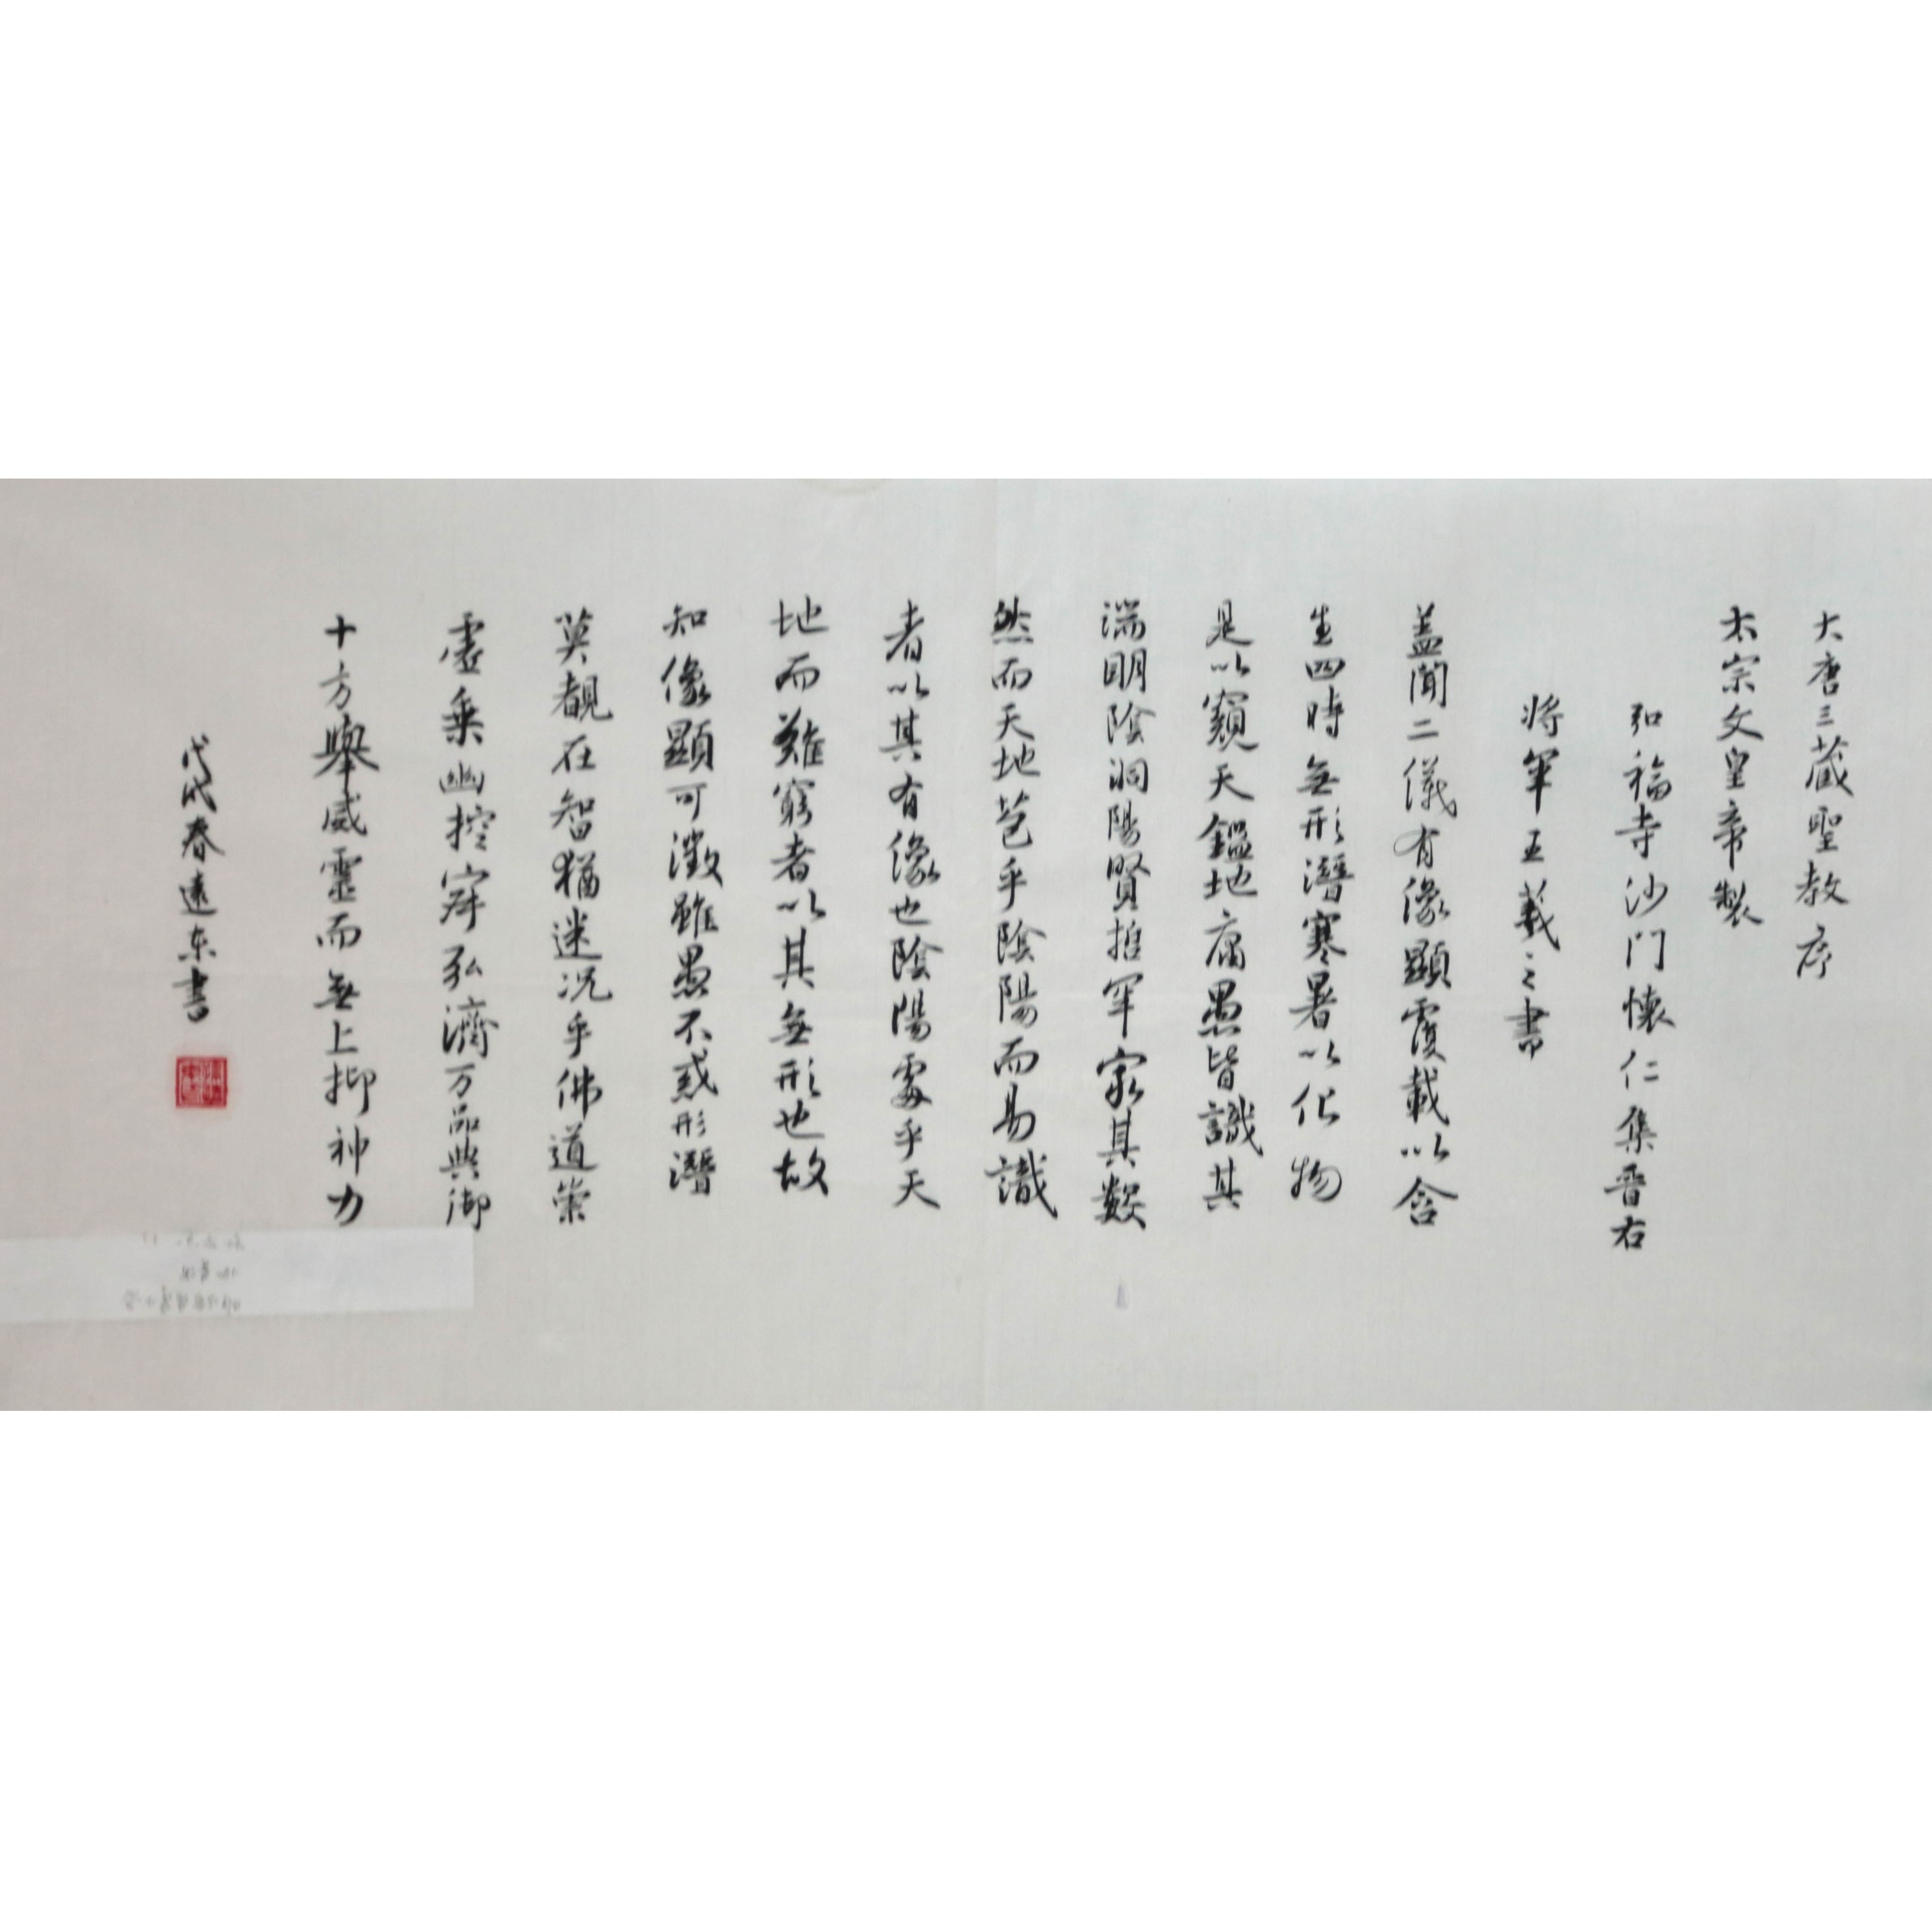 大唐三蔵聖教序
太宗文皇帝製
弘福寺沙門懐仁集晋右
将軍王羲之書
盖聞二儀有像顯覆載以含
生四時無形潛寒暑以化物
是以窺天鑑地庸愚皆識其
端明陰洞陽賢哲罕窮其數
然而天地苞乎陰陽而易識
者以其有像也陰陽處乎天
地而難窮者以其無形也故
知像顯可徵雖愚不惑形潛
莫覩在智猶迷况乎佛道崇
虛乗幽控寂弘濟万品典御
十方舉威靈而無上抑神力
戊戌春遠东書